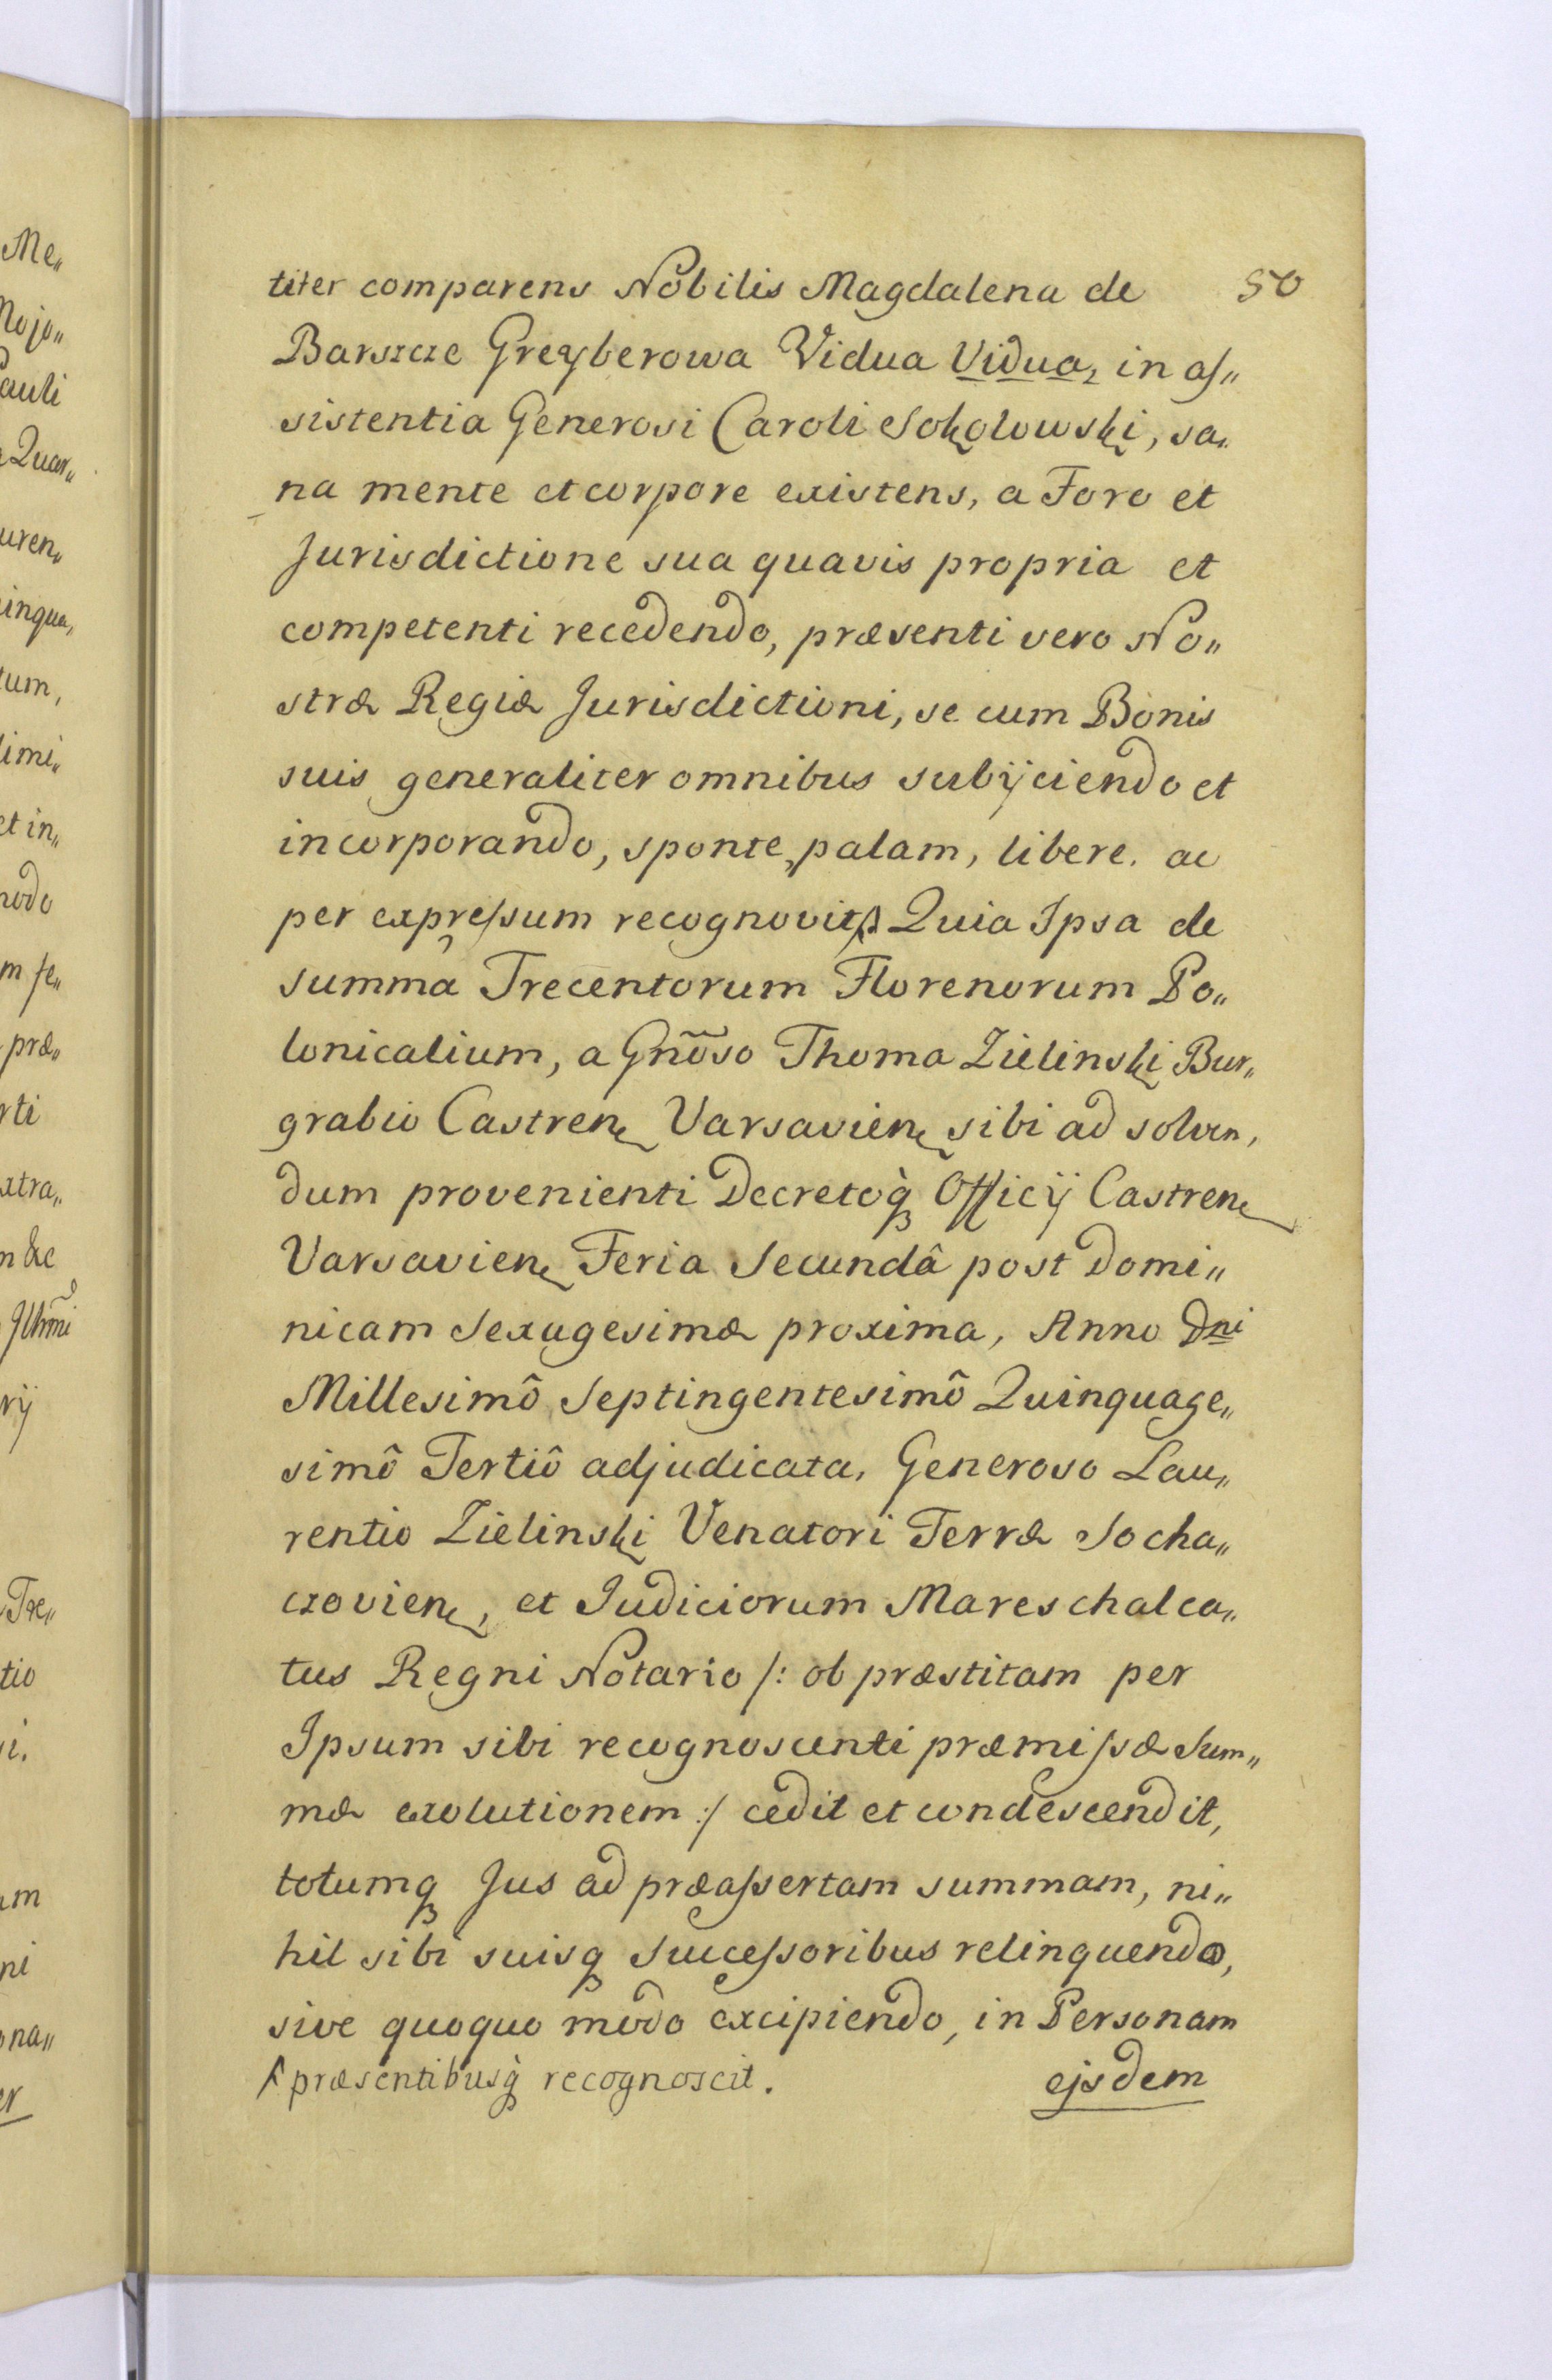 titer comparens Nobilis Magdalena de
50
Barszcze Greyberowa Vidua Vidua, in as„
sistentia Generosi Caroli Sokolowski, sa„
na mente et corpore existens, a Foro et
Jurisdictione sua quavis propria et
competenti recedendo, præsenti vero No„
stræ Regiæ Jurisdictioni, se cum Bonis
suis generaliter omnibus subijciendo et
incorporando, sponte, palam, libere. ac
per expressum recognovit Quia Ipsa de
summa Trecentorum Florenorum Po„
lonicalium, a Gnõso Thoma Zielinski Bur„
grabio Castren Varsavien sibi ad solven„
dum provenienti Decretoq̀ Officij Castren
Varsavien Feria Secundâ post Domi„
nicam Sexagesimæ proxima, Anno Dni
Millesimô Septingentesimô Quinquage„
simô Tertiô adjudicata, Generoso Lau„
rentio Zielinski Venatori Terræ Socha„
czovien, et Judiciorum Mareschalca„
tus Regni Notario /: ob præstitam per
Ipsum sibi recognoscenti præmissæ Sum„
mæ exolutionem :/ cedit et condescendit,
totumq Jus ad præassertam summam, ni„
hil sibi suisq Successoribus relinquendo,
sive quoquo modo excipiendo, in Personam
præsentibusq̀ recognoscit.
ejsdem
Me„
Nojo„
Pauli
Quar„
uren„
inqua„
tum,
limi„
et in„
modo
m fe„
præ„
rti
xtra„
m &c
Illmi
rij
Tre„
tio
si.
um
ni
ona„
er